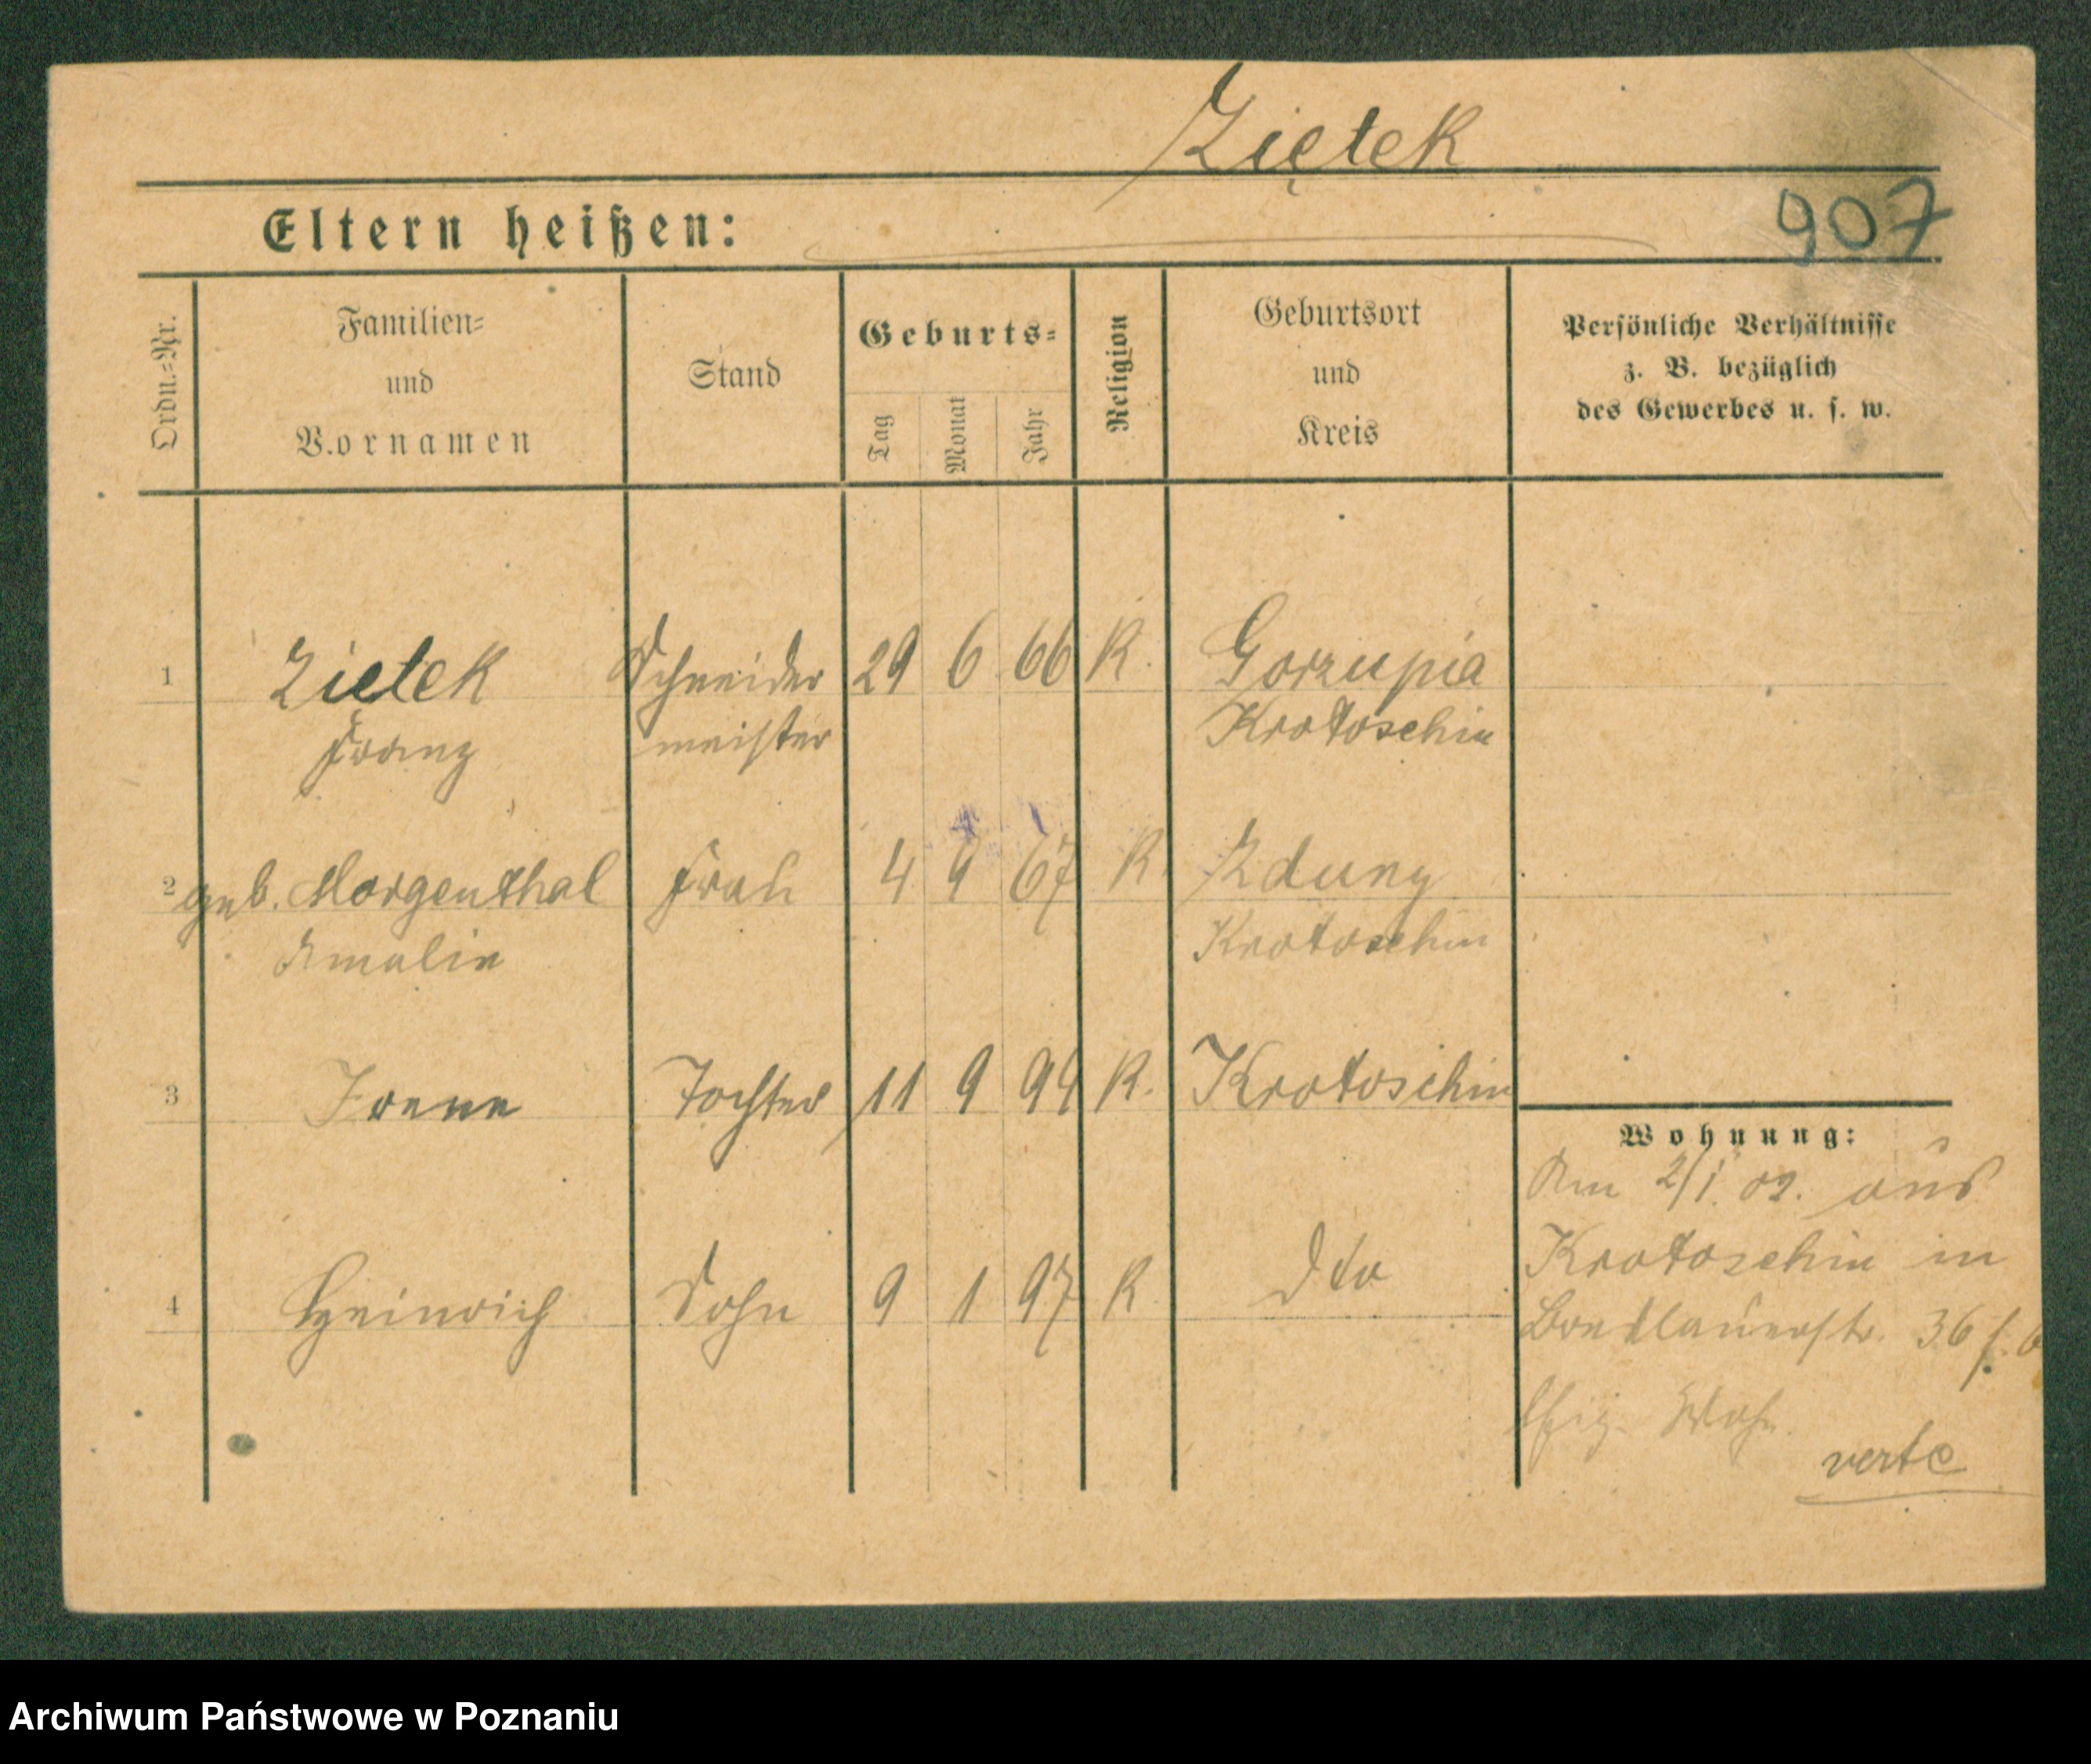 Ziętek
Eltern heißen:
907
Ordn.-Nr.
Familien-
und
Vornamen
Stand
Geburts-
Tag
Monat
Jahr
Religion
Geburtsort
und
Kreis
Persönliche Verhältnisse
z. B. bezüglich
des Gewerbes u. s. w.
1 Ziętek Schneider 29 6 66 K. Gorzupia
Franz meister Krotoschin
2 geb. Morgenthal Frau 4 9 67 K. Zduny
Amalie Krotoschin
3 Irene Tochter 11 9 94 K. Krotoschin
4 Heinrich Sohn 9 1 97 K dto
Wohnung:
Am 2/1. 02. aus
Krotoschin in
36
verte
Archiwum Państwowe w Poznaniu